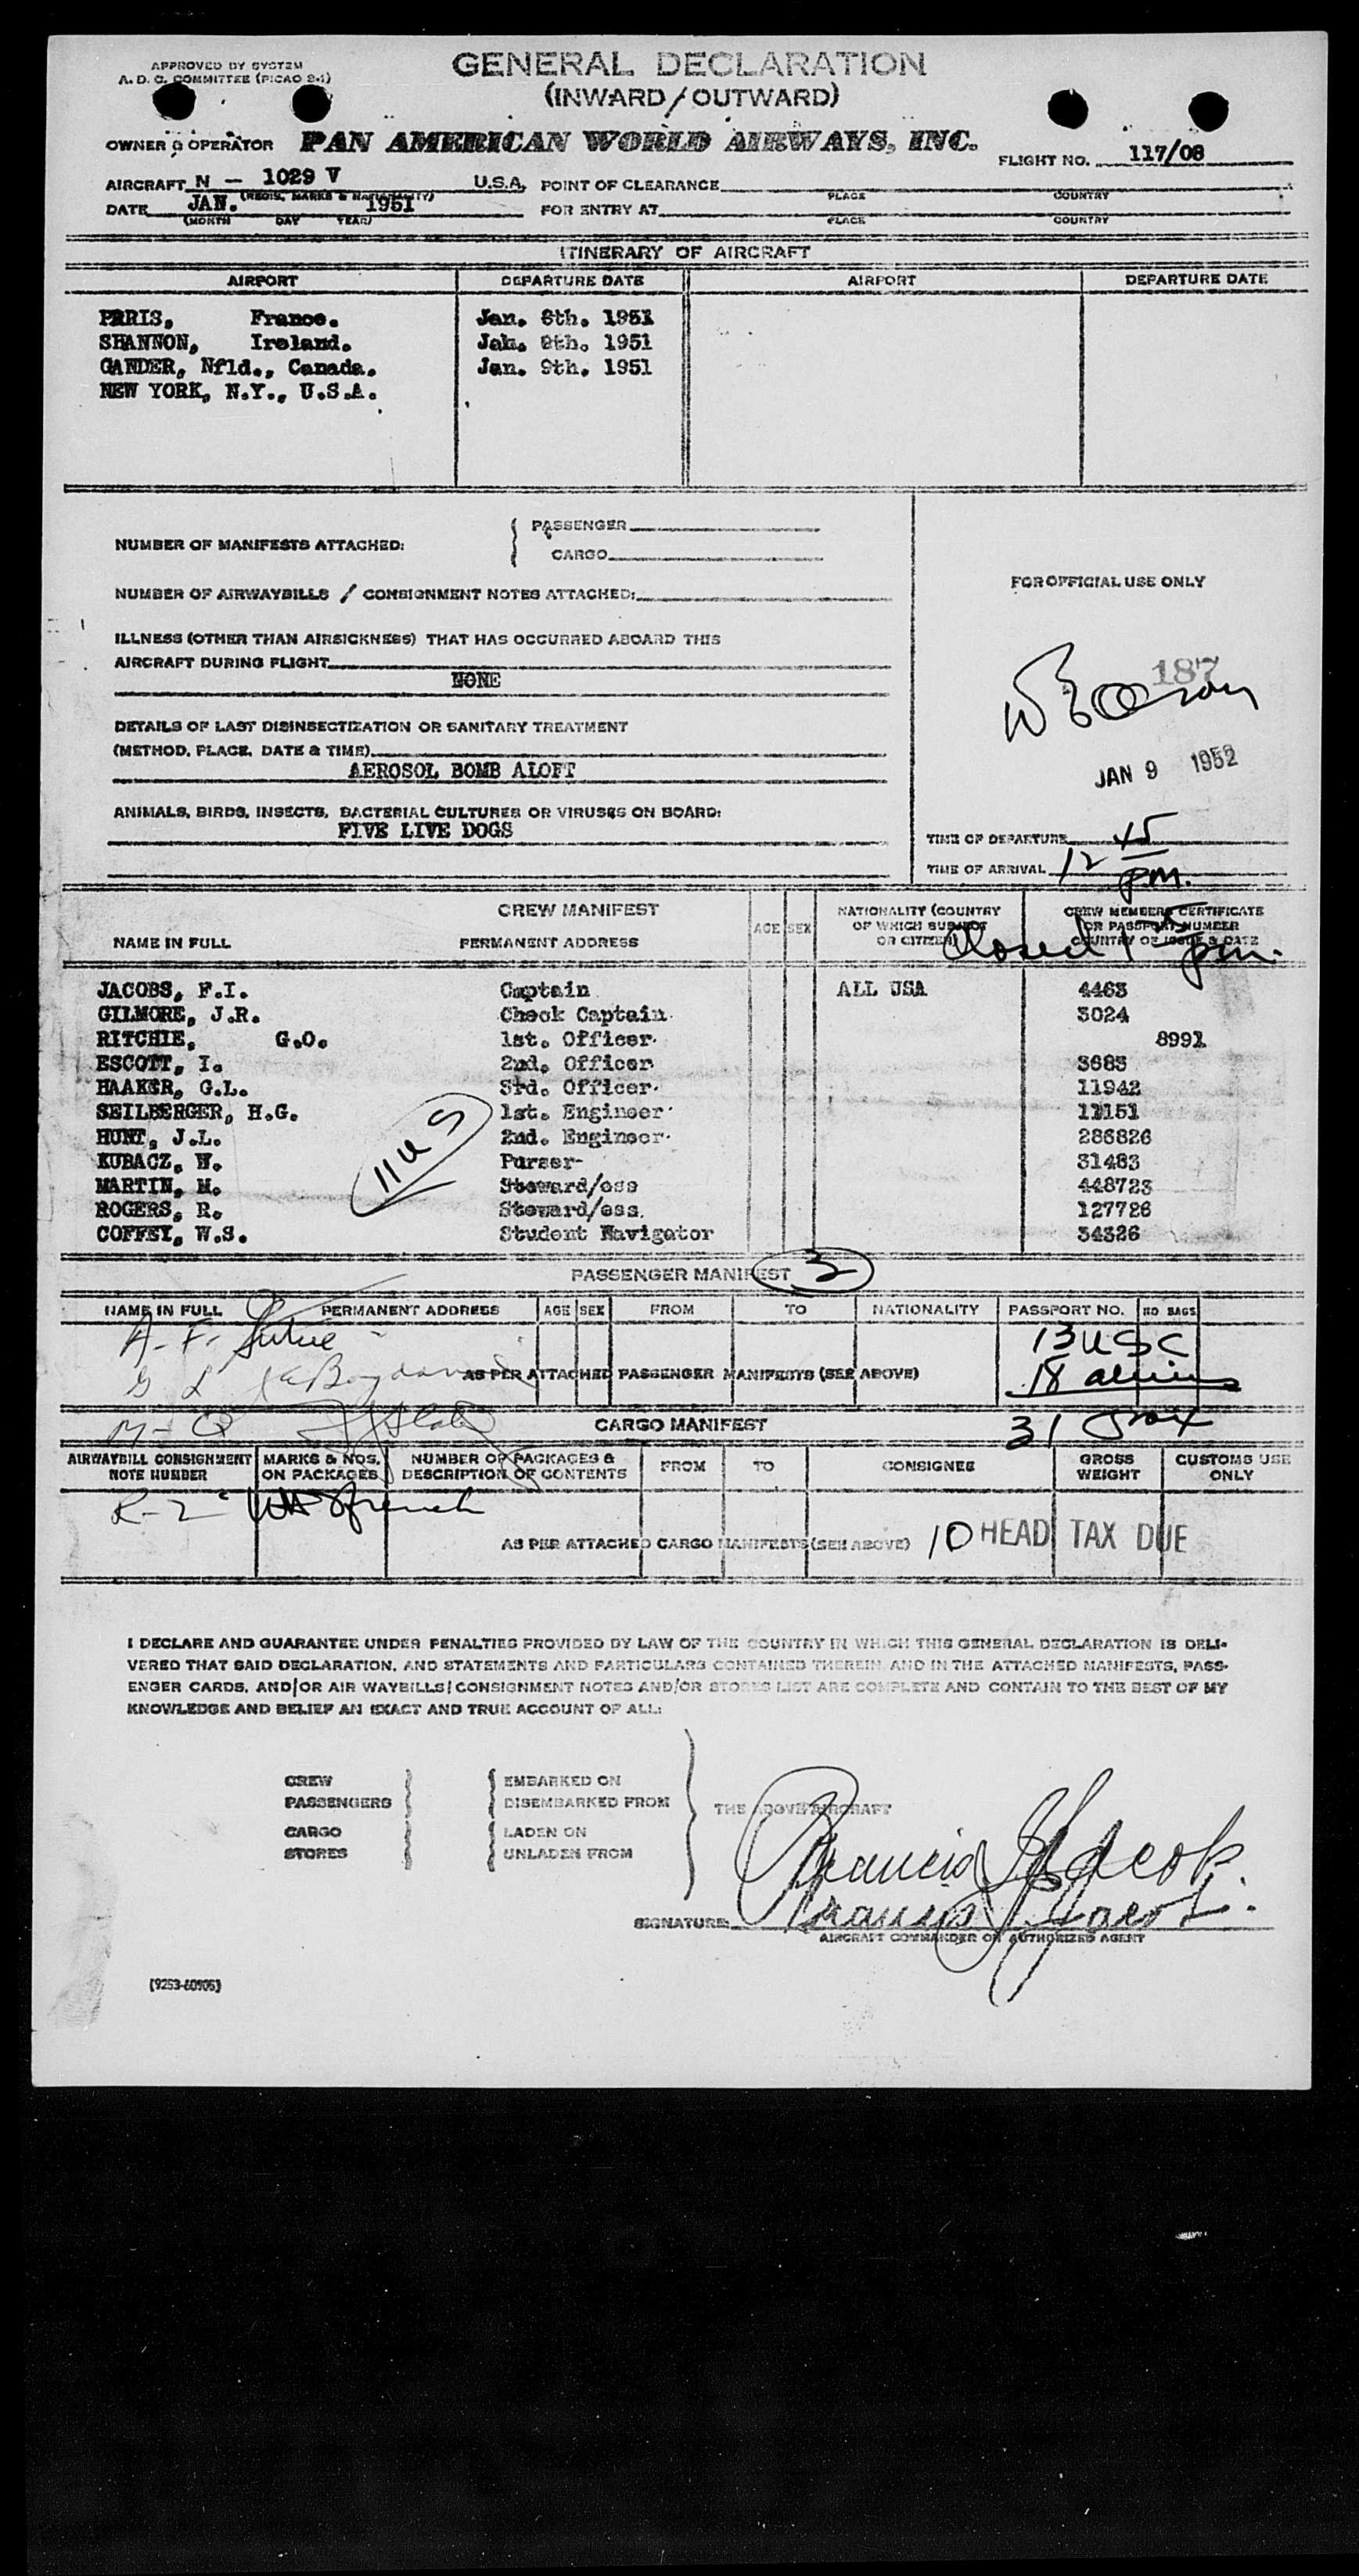 APPROVED BY SYSTEM
A. D. C. COMMITTEE (PICAO 2-1)
GENERAL DECLARATION
(INWARD/OUTWARD)
OWNER & OPERATOR PAN AMERICAN WORLD AIRWAYS, INC. FLIGHT NO. 117/08
AIRCRAFT N - 1029 V U.S.A. POINT OF CLEARANCE
(REGIS. MARKS & NATIONALITY) PLACE COUNTRY
DATE JAN. 1951 FOR ENTRY AT
(MONTH DAY YEAR) PLACE COUNTRY
ITINERARY OF AIRCRAFT
AIRPORT DEPARTURE DATE AIRPORT DEPARTURE DATE
PARIS, France. Jan. 8th. 1951
SHANNON, Ireland. Jan. 8th. 1951
GANDER, Nfld., Canada. Jan. 9th. 1951
NEW YORK, N.Y., U.S.A.
NUMBER OF MANIFESTS ATTACHED: PASSENGER
CARGO
NUMBER OF AIRWAYBILLS / CONSIGNMENT NOTES ATTACHED:
FOR OFFICIAL USE ONLY
ILLNESS (OTHER THAN AIRSICKNESS) THAT HAS OCCURRED ABOARD THIS
AIRCRAFT DURING FLIGHT
NONE
187
DETAILS OF LAST DISINSECTIZATION OR SANITARY TREATMENT
(METHOD, PLACE, DATE & TIME)
AEROSOL BOMB ALOFT
JAN 9 1952
ANIMALS, BIRDS, INSECTS, BACTERIAL CULTURES OR VIRUSES ON BOARD:
FIVE LIVE DOGS
TIME OF DEPARTURE
TIME OF ARRIVAL 12 45 p.m.
CREW MANIFEST
NAME IN FULL PERMANENT ADDRESS AGE SEX NATIONALITY (COUNTRY OF WHICH SUBJECT OR CITIZEN) CREW MEMBERS CERTIFICATE OR PASSPORT NUMBER COUNTRY OF ISSUE & DATE
Closed 1 15 pm.
JACOBS, F.I. Captain ALL USA 4463
GILMORE, J.R. Check Captain 3024
RITCHIE, G.O. 1st. Officer 8991
ESCOTT, I. 2nd. Officer 3683
HAAKER, G.L. 3rd. Officer 11942
SEILBERGER, H.G. 1st. Engineer 11151
HUNT, J.L. 2nd. Engineer 286826
KUBACZ, W. Purser 31483
MARTIN, M. Steward/ess 448723
ROGERS, R. Steward/ess. 127726
COFFEY, W.S. Student Navigator 34326
11 U S
PASSENGER MANIFEST 3
NAME IN FULL PERMANENT ADDRESS AGE SEX FROM TO NATIONALITY PASSPORT NO. NO. BAGS
A-F
13 USC
G L
AS PER ATTACHED PASSENGER MANIFESTS (SEE ABOVE)
18 aliens
M-Q
CARGO MANIFEST
31
AIRWAYBILL CONSIGNMENT NOTE NUMBER MARKS & NOS. ON PACKAGES NUMBER OF PACKAGES & DESCRIPTION OF CONTENTS FROM TO CONSIGNEE GROSS WEIGHT CUSTOMS USE ONLY
R-Z
AS PER ATTACHED CARGO MANIFESTS (SEE ABOVE) 10 HEAD TAX DUE
I DECLARE AND GUARANTEE UNDER PENALTIES PROVIDED BY LAW OF THE COUNTRY IN WHICH THIS GENERAL DECLARATION IS DELI-
VERED THAT SAID DECLARATION, AND STATEMENTS AND PARTICULARS CONTAINED THEREIN AND IN THE ATTACHED MANIFESTS, PASS-
ENGER CARDS, AND/OR AIR WAYBILLS/CONSIGNMENT NOTES AND/OR STORES LIST ARE COMPLETE AND CONTAIN TO THE BEST OF MY
KNOWLEDGE AND BELIEF AN EXACT AND TRUE ACCOUNT OF ALL:
CREW EMBARKED ON
PASSENGERS DISEMBARKED FROM THE ABOVE AIRCRAFT
CARGO LADEN ON
STORES UNLADEN FROM
Francis I Jacobs.
SIGNATURE: Francis I Jacobs.
AIRCRAFT COMMANDER OR AUTHORIZED AGENT
(9253-60905)